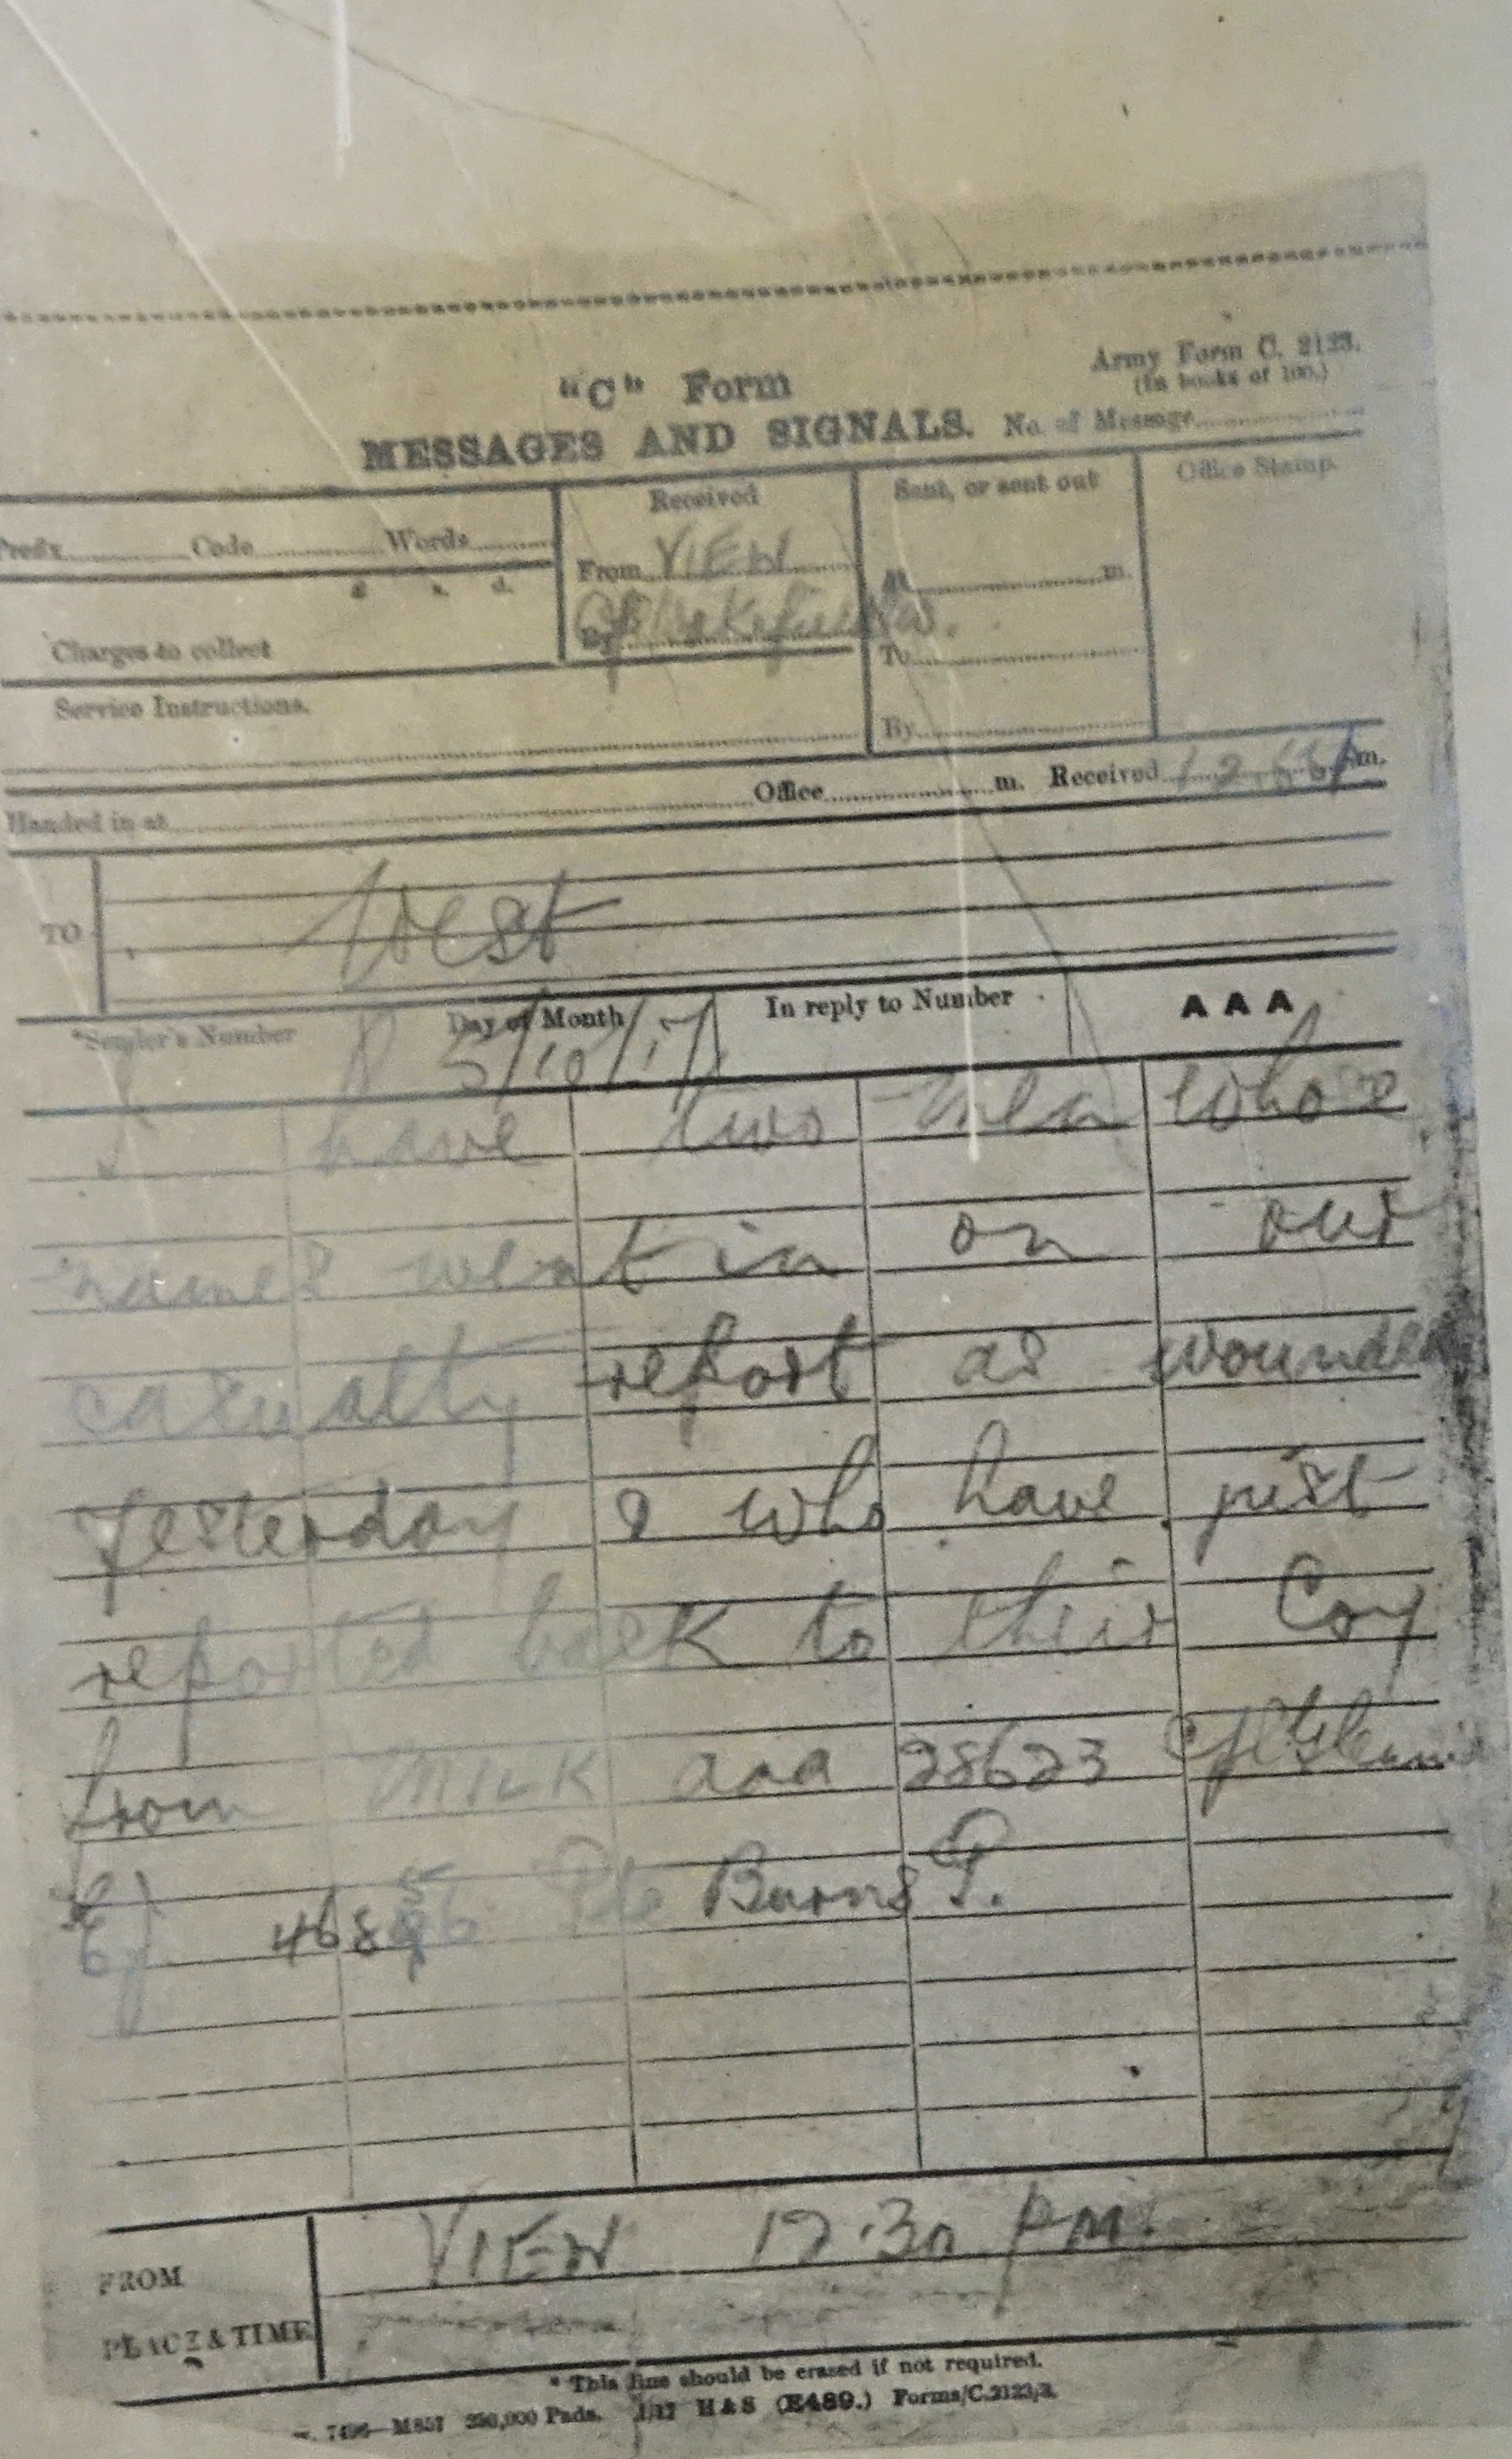 "C" Form
Army Form C. 2123.
(In books of 100.)
MESSAGES AND SIGNALS.
No. of Message
Prefix Code Words
Received
Sent, or sent out
Office Stamp.
£ s. d.
From VIEW
At m.
Charges to collect
By
To
Service Instructions.
By
Handed in at Office m. Received m.
TO West
*Sender's Number
Day of Month
In reply to Number
AAA
5/10/17
I have two men whose
names went in on our
casualty report as wounded
yesterday & who have just
reported back to their Coy
from MILK aaa 28623
Burns P.
FROM VIEW 12.30 PM.
PLACE & TIME
* This line should be erased if not required.
7496—M857 250,000 Pads. 1/17 H & S (E489.) Forms/C.2123/3.